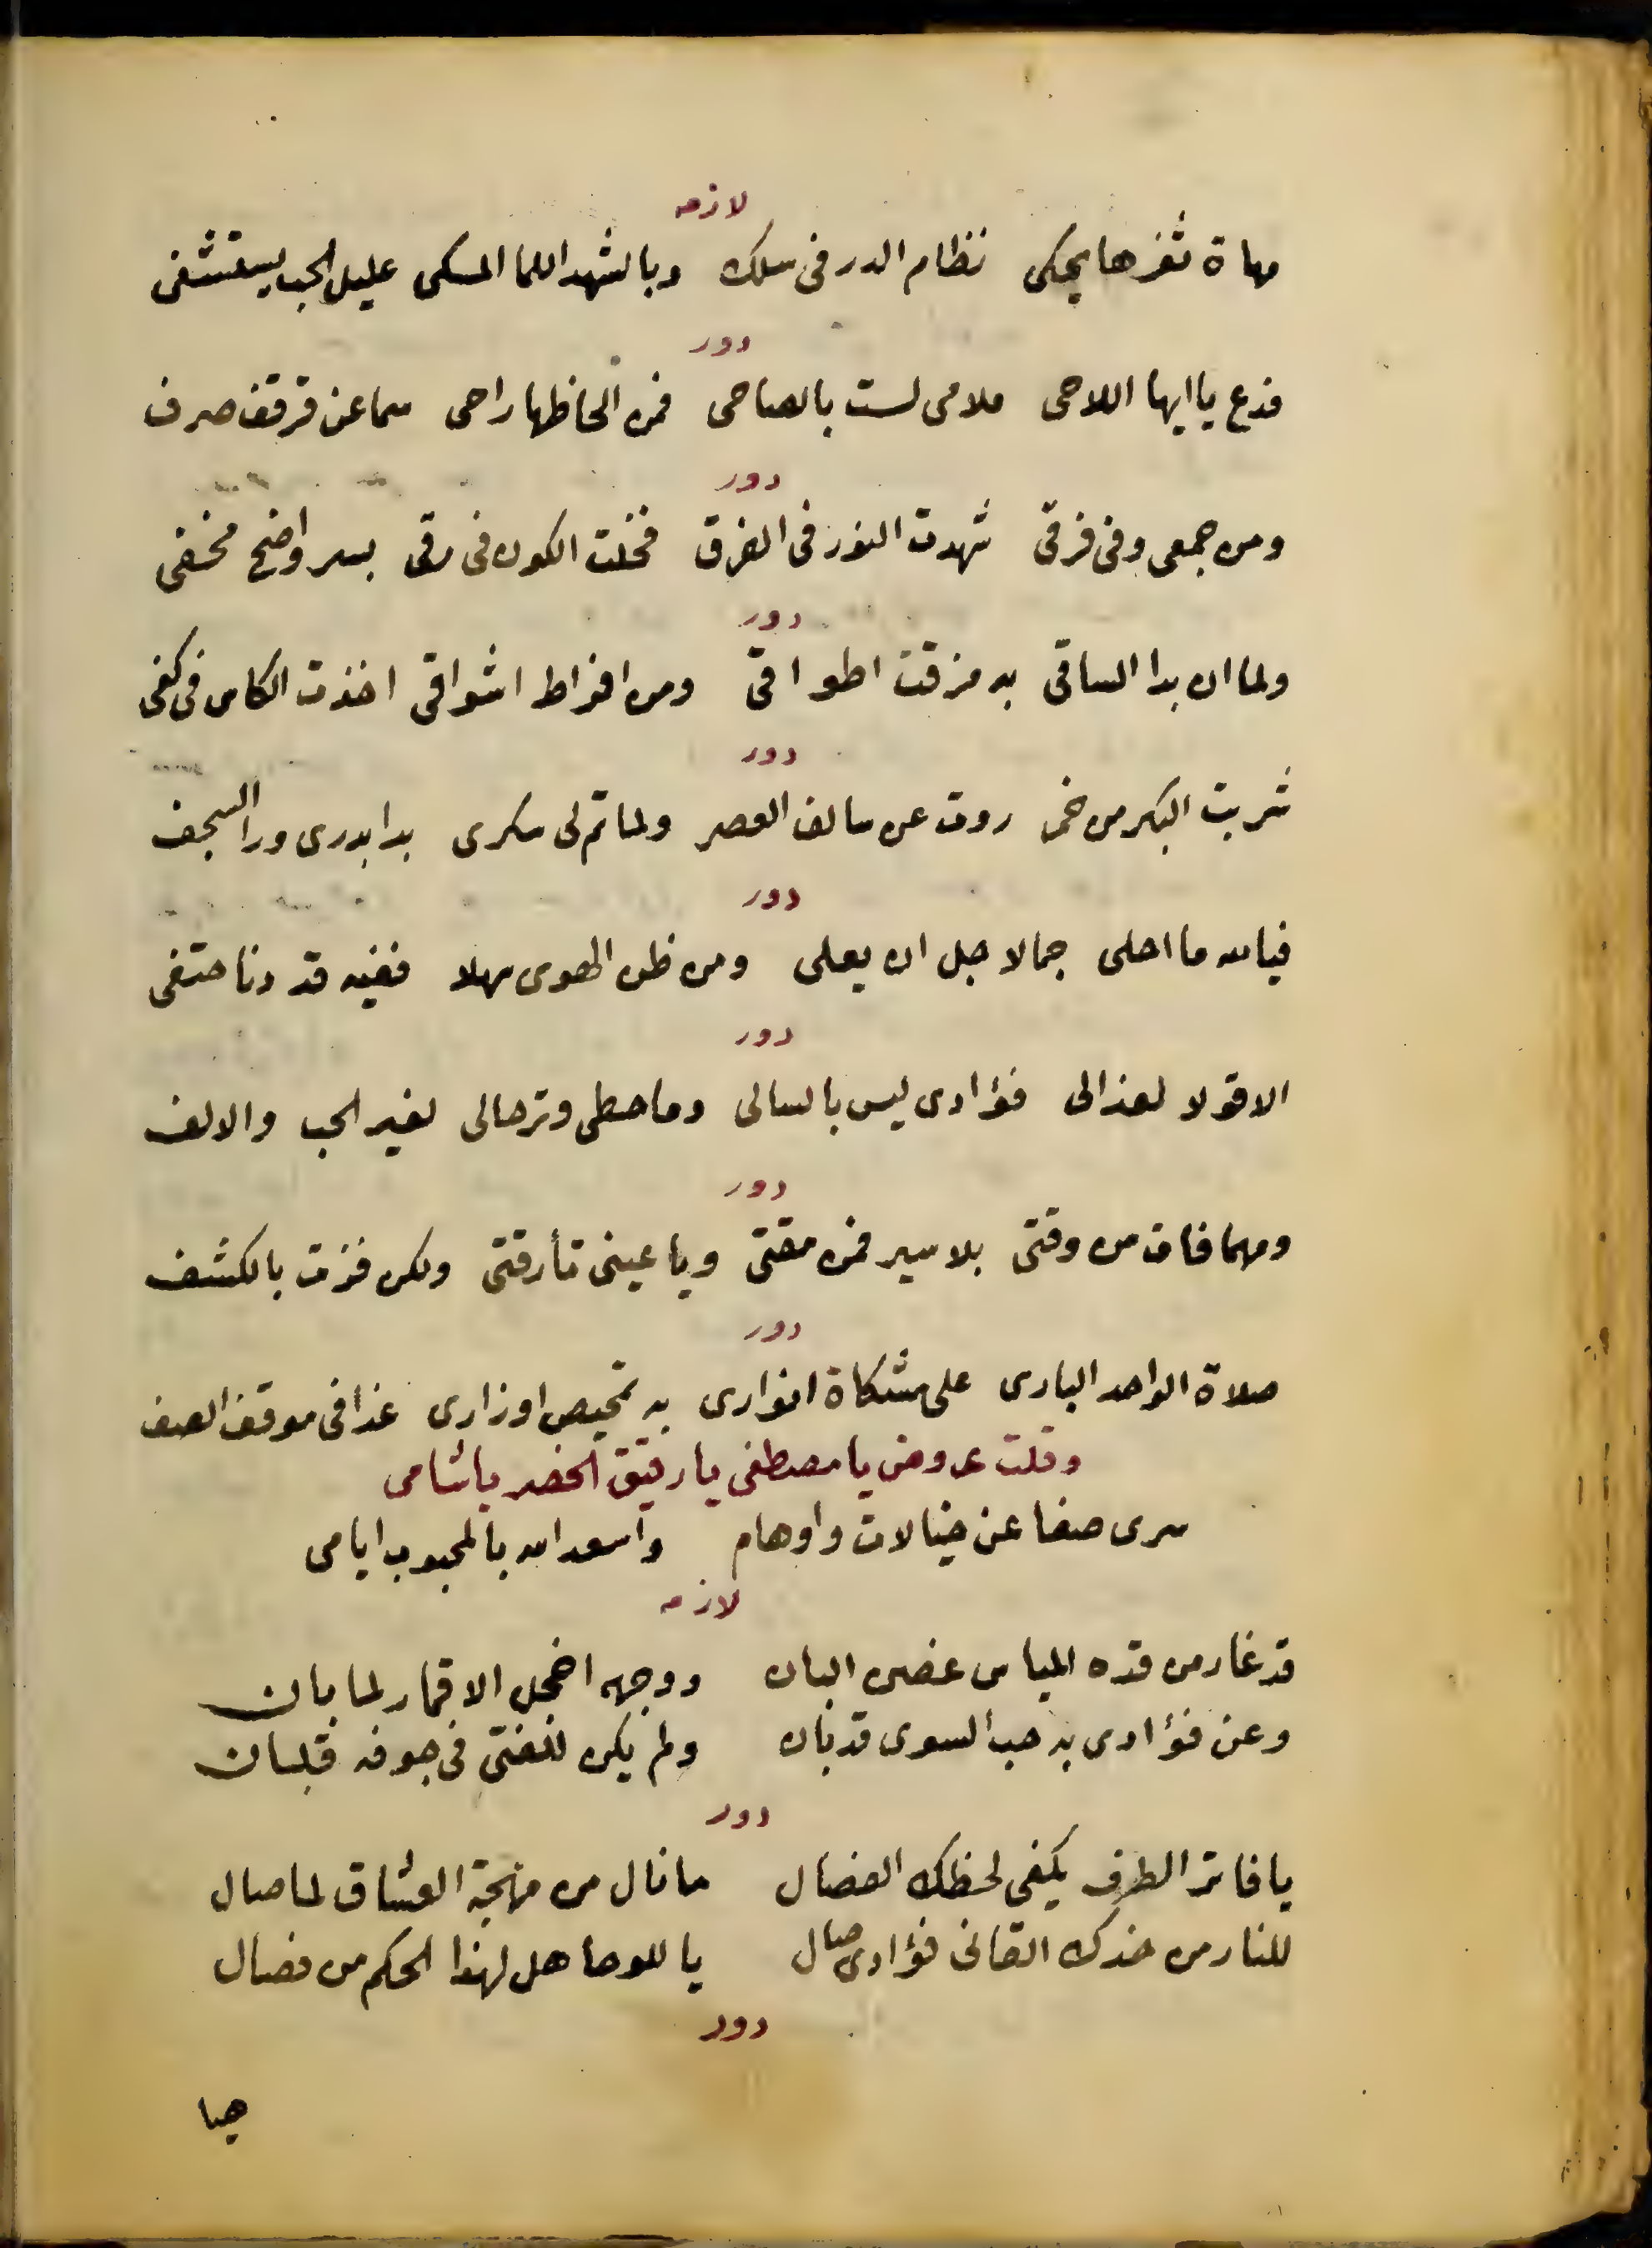 لازمه
مهاة ثغرها يحكى نظام الدر فى سلك وبالشهد اللما المسكى عليل الحب يستشفى
دور
فدع يا ايها اللاحى ملامى لست بالصاحى فمن الحاظها راحى سما عن قرقف صرف
دور
ومن جمعى وفى فرقى شهدت النور فى الفرق فخلت الكون فى رقى بسر واضح مخفى
دور
ولما ان بدا الساقى به مزقت اطواقى ومن افراط اشواقى اخذت الكاس فى كفى
دور
شربت البكر من خمر روت عن سالف العصر ولما تم لى سكرى بدا بدرى ورا السجف
دور
فيالله ما احلى جمالا جل ان يعلى ومن ظن الهوى سهلا ففيه قد دنا حتفى
دور
الا قولا لعذالى فؤادى ليس بالسالى وما حطى وترحالى لغير الحب والالف
دور
ومهما فات من وقتى بلا سير فمن مقتى ويا عينى تأرقتى ولكن فزت بالكشف
دور
صلاة الواحد البارى على مشكاة انوارى به تمحيص اوزارى غدا فى موقف الصف
وقلت عروض يا مصطفى يا رفيق الخضر يا شامى
سرى صفا عن خيالات واوهام واسعد الله بالمحبوب ايامى
لازمه
قد غار من قده المياس غصن البان ووجهه اخجل الاقمار لما بان
وعن فؤادى به حب السوى قد بان ولم يكن للفتى فى جوفه قلبان
دور
يا فاتر الطرف يكفى لحظك الفصال ما نال من مهجة العشاق لما صال
للنار من خدك القانى فؤادى صال يا للوحا هل لهذا الحكم من فصال
دور
هيا